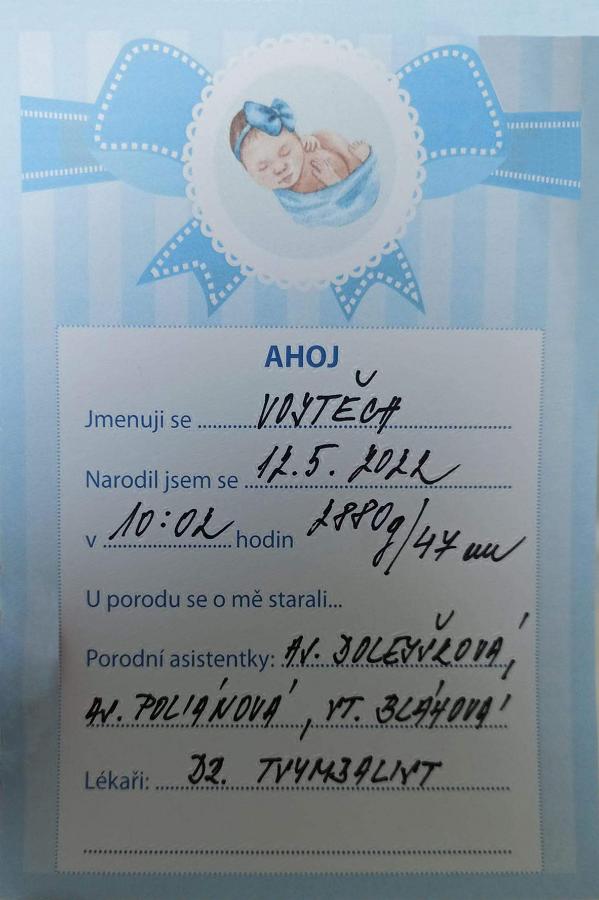 AHOJ
Jmenuji se VOJTĚCH
Narodil jsem se 12.5. 2022
v 10:02 hodin 2880g/47 cm
U porodu se o mě starali...
Porodní asistentky:
POLIÁNOVÁ, BLÁHOVÁ
Lékaři: DR.